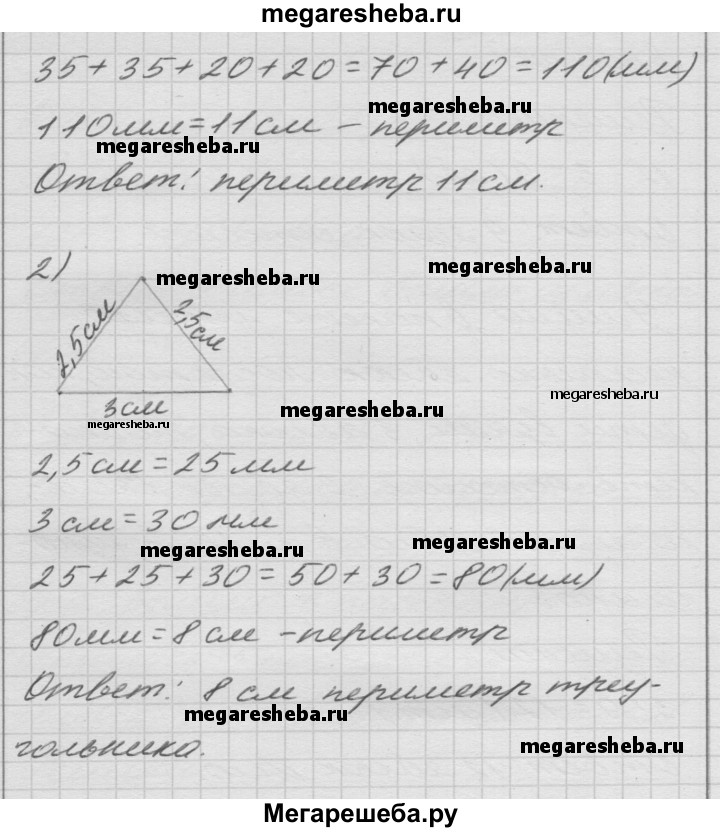 megaresheba.ru
35+35+20+20=70+40=110(мм)
megaresheba.ru
110мм=11см - периметр
megaresheba.ru
Ответ: периметр 11 см.
2)
megaresheba.ru
megaresheba.ru
2,5 см
2,5 см
3 см
megaresheba.ru
megaresheba.ru
megaresheba.ru
2,5 см = 25 мм
3 см = 30 мм
megaresheba.ru
megaresheba.ru
25+25+30=50+30=80(мм)
80мм=8 см - периметр
Ответ: 8 см периметр треу-
megaresheba.ru
гольника.
megaresheba.ru
Мегарешеба.ру